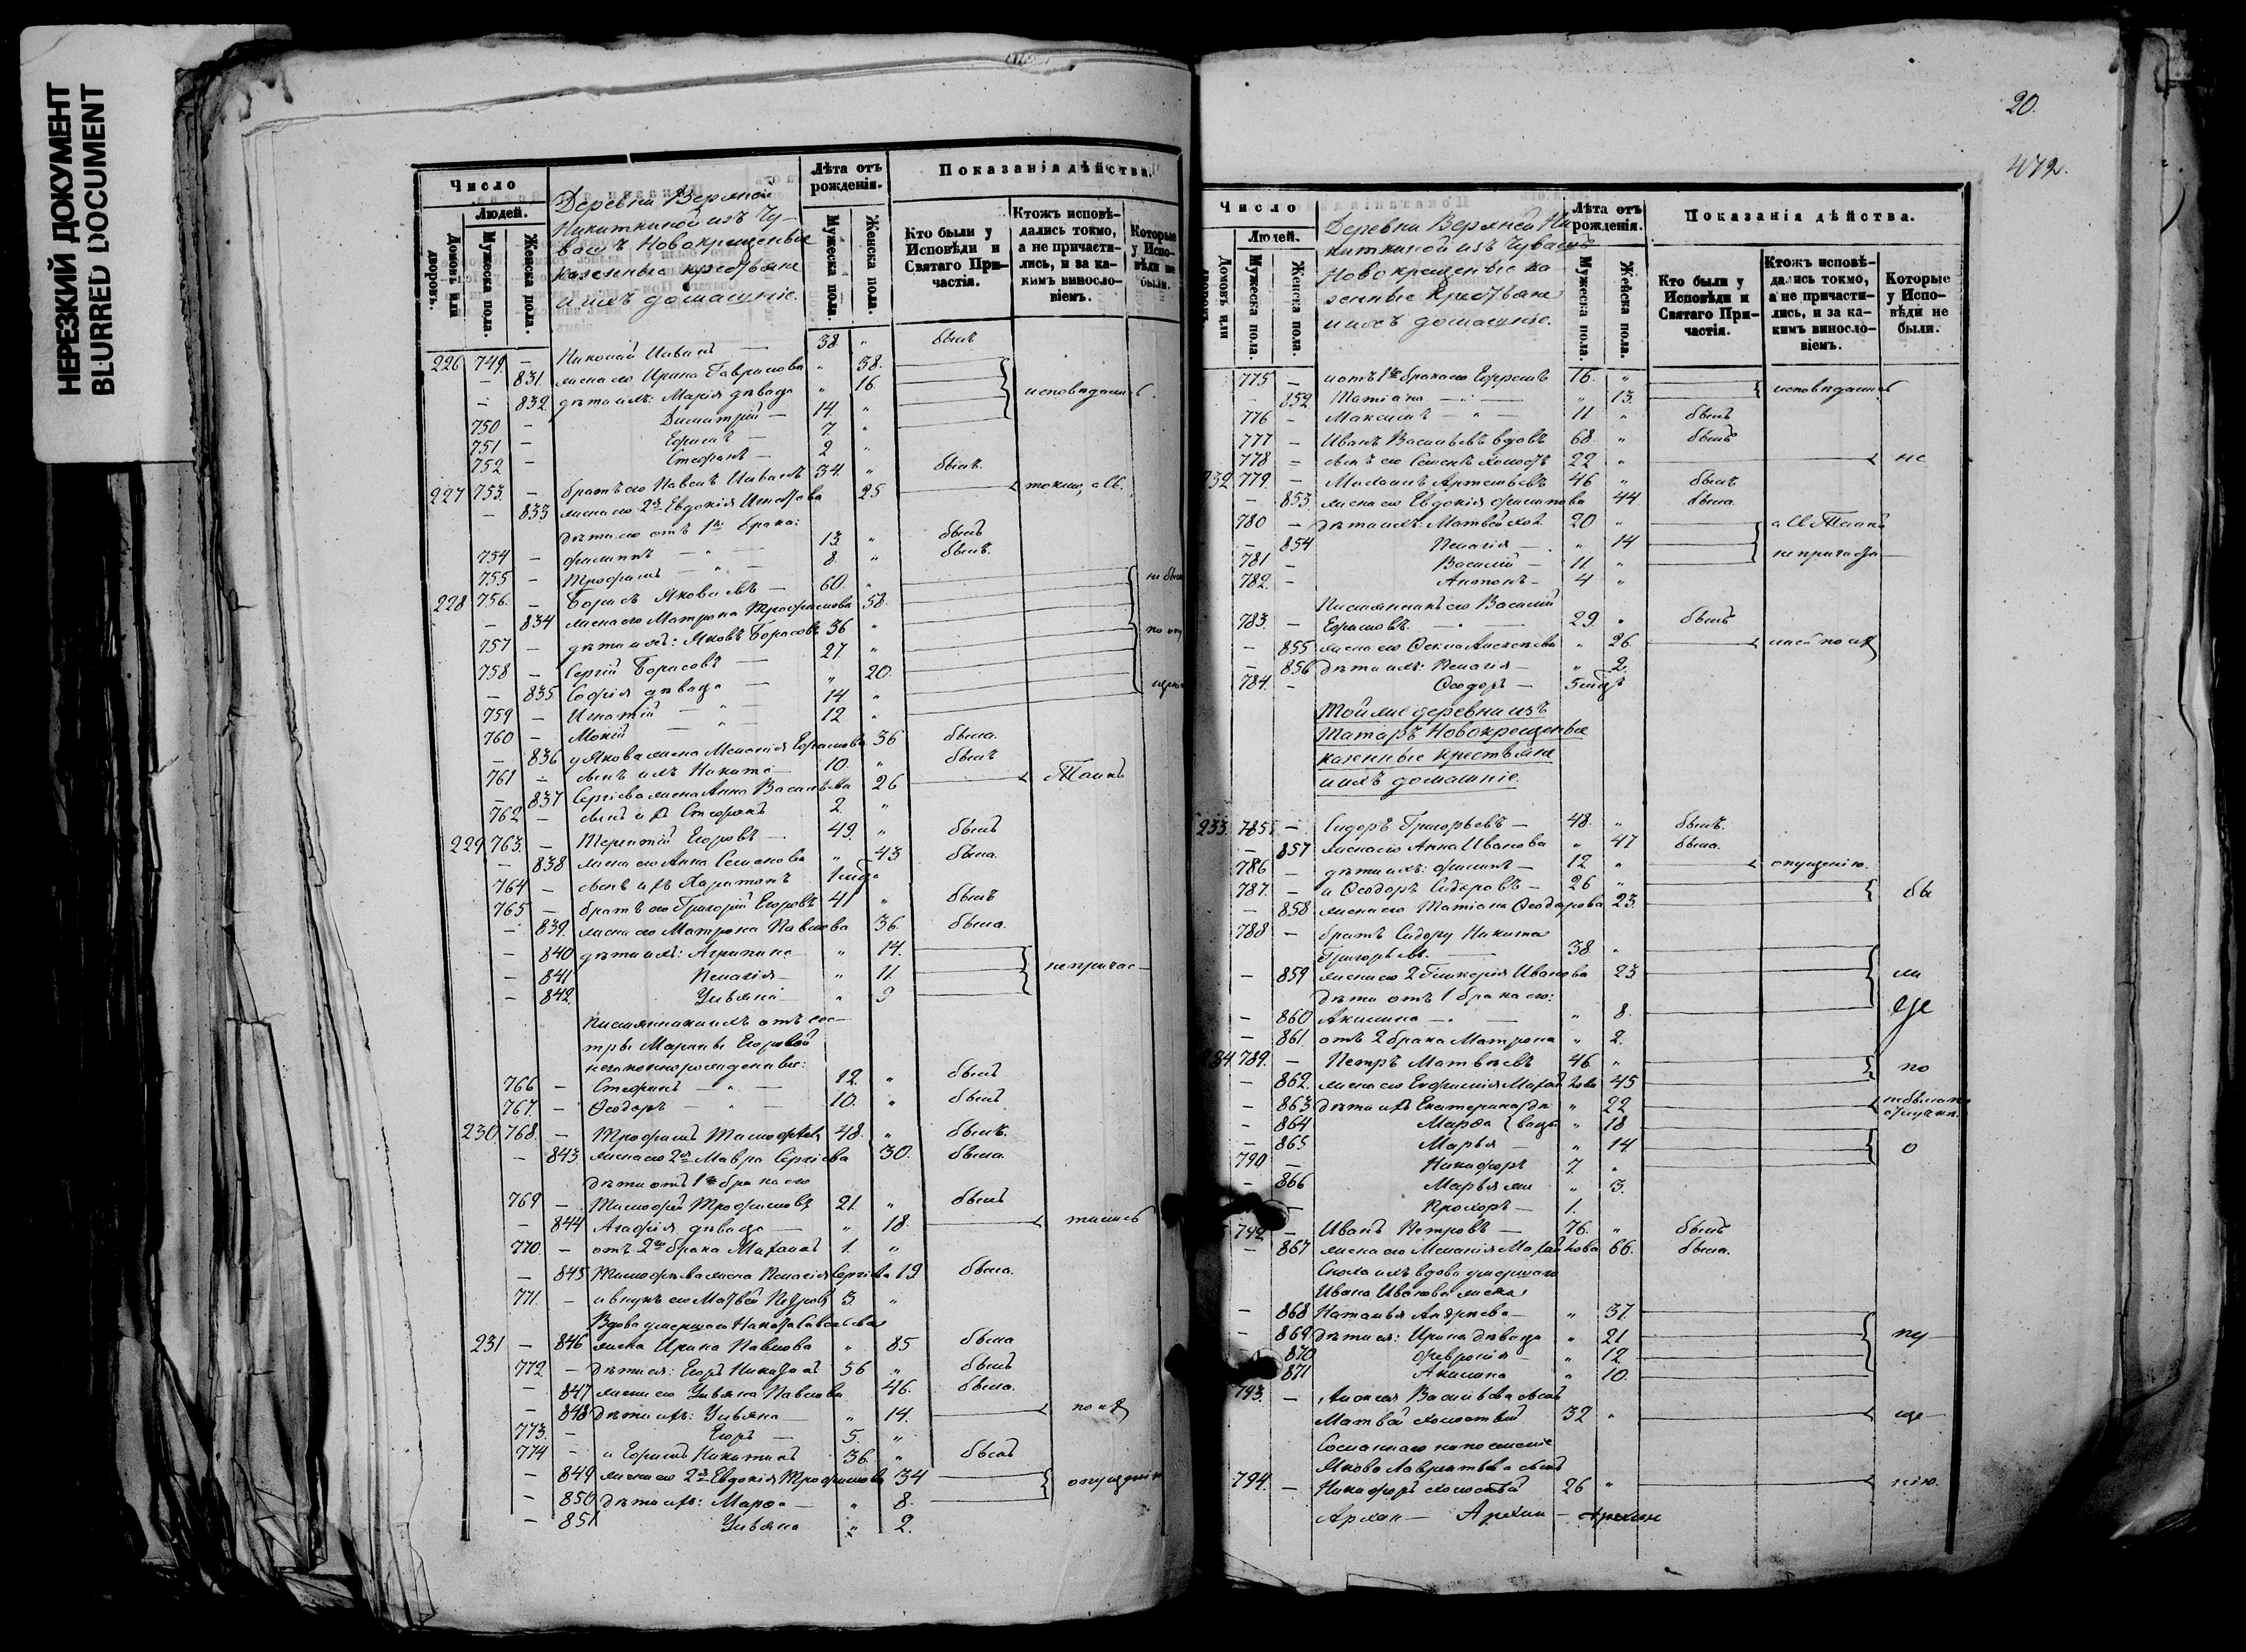 НЕРЕЗКИЙ ДОКУМЕНТ
BLURRED DOCUMENT
Число
Людей.
Домовъ или дворовъ.
Мужеска пола.
Женска пола.
Деревни Верхней
Никиткиной изъ Чу-
вашъ Новокрещеные
казенные крестьяне
и ихъ домашніе.
Лѣта отъ рожденія.
Мужеска пола.
Женска пола.
Показанія дѣйства.
Кто были у Исповѣди и Святаго Причастія.
Ктожъ исповѣдались токмо, а не причастились, и за какимъ винословіемъ.
Которые у Исповѣди не были.
226 749 — Николай Ивановъ — 38 " былъ
— 831 жена его Ирина Гаврилова " 38.
— 832 дѣти ихъ: Марія дѣвица " 16 исповѣдались
750 — Димитрій — 14 "
751 — Ефимъ — 7 "
752 — Стефанъ — 2 "
227 753 — братъ его Павелъ Ивановъ 34 " былъ.
— 833 жена его 2я Евдокія 25 токмо, а Св.
дѣти его отъ 1го брака:
754 — Филиппъ — " — 13 " былъ
755 — Трофимъ — " — 8 " былъ.
228 756 — Борисъ Яковлевъ — 60 " не были
— 834 жена его Матрона Трофимова 58.
757 — дѣти ихъ: Яковъ Борисовъ 36 "
758 — Сергій Борисовъ 27 "
— 835 Софія дѣвица — " 20
759 — Игнатій — " — 14 "
760 — Мокій — " — 12 "
— 836 у Якова жена Меланія Ефимова 36 была.
761 — сынъ ихъ Никита 10 " былъ
— 837 Сергіева жена Анна Васильева 26 Таинъ
762 — сынъ ихъ Стефанъ 2 "
229 763 — Терентій Егоровъ — 49 " былъ
— 838 жена его Анна Семенова " 43 была.
764 — сынъ ихъ Харитонъ
765 — братъ его Григорій Егоровъ 41 " былъ
— 839 жена его Матрона Павлова 36 была.
— 840 дѣти ихъ: Агрипина — " 14
— 841 Пелагія — " 11 не причас—
— 842 Ульяна — " 9
племянники ихъ отъ сес—
тры Марины Егоровой
незаконнорожденные:
766 — Стефанъ — " — 12 " былъ
767 — Ѳеодоръ — " — 10 " былъ
230 768 — Трофимъ Тимофѣевъ 48 " былъ.
— 843 жена его 2я Мавра Сергіева 30 была.
дѣти отъ 1го брака его
769 — Тимофей Трофимовъ 21 " былъ
— 844 Агафія дѣвица — " 18 тились
770 — отъ 2го брака Михаилъ 1 "
— 845 Тимофѣева жена Пелагія Сергіева 19 была.
771 — и внукъ его Матвей Петровъ 3 "
Вдова умершаго Никиты Савельева
231 — 846 жена Ирина Павлова " 85 была
772 — дѣти ея: Егоръ Никитинъ 56 " былъ
— 847 жена его Ульяна Павлова 46 была.
— 848 дѣти ихъ: Ульяна — " 14 по их
773 — Егоръ — 5 "
774 — и Ефимъ Никитинъ 36 " былъ
— 849 жена его 2я Евдокія Трофимова 34 опущенію
— 850 дѣти ихъ: Марѳа — " 8
— 851 Ульяна " 2
20.
472.
Число
Людей.
Домовъ или дворовъ.
Мужеска пола.
Женска пола.
Деревни Верхней Ни
киткиной изъ Чувашъ
Новокрещеные ка
зенные Крестьяне
и ихъ домашніе.
Лѣта отъ рожденія.
Мужеска пола.
Женска пола.
Показанія дѣйства.
Кто были у Исповѣди и Святаго Причастія.
Ктожъ исповѣдались токмо, а не причастились, и за какимъ винословіемъ.
Которые у Исповѣди не были.
775 — и отъ 1го брака его Ефремъ 16 " исповѣдались
— 852 Татіана — " — " 13
776 — Максимъ — " — 11 " былъ
777 — Иванъ Васильевъ вдовъ 68 " былъ
778 — сынъ его Семенъ холостъ 22 " не
232 779 — Михаилъ Артемьевъ 46 " былъ
— 853 жена его Евдокія Филипова 44 была
780 — дѣти ихъ: Матвей хол 20 " а Св Таинъ
— 854 Пелагія — " 14
781 — Василій — 11 " не причаст
782 — Антонъ — 4 "
Племянникъ его Василій
783 — Ефимовъ — 29 " былъ
— 855 жена его Алексѣева " 26
— 856 дѣти ихъ: Пелагія — " 2
784 — Ѳеодоръ —
Той же деревни изъ
Татаръ Новокрещеные
казенные крестьяне
и ихъ домашніе.
233 785 — Сидоръ Григорьевъ — 48 " былъ.
— 857 жена его Анна Иванова " 47 была.
786 — дѣти ихъ: Филипъ — 12 " опущенію.
787 — и Ѳеодоръ Сидоровъ — 26 " бы
— 858 жена его Татіана Ѳеодорова 23
788 — братъ Сидору Никита
Григорьевъ — 38 "
— 859 жена его 2 Гликерія Иванова 23 ли
дѣти отъ 1 брака его:
— 860 Акилина — " — " 8 еје
— 861 отъ 2 брака Матрона " 2
234 789 — Петръ Матвѣевъ 46 " по
— 862 жена его Евфимія Михайлова 45
— 863 дѣти ихъ Екатерина дѣ " 22
— 864 Марѳа вицы " 18
— 865 Марья — " 14 о
790 — Никифоръ 7 "
— 866 Марья " 3
— Прохоръ — 1
792 — Иванъ Петровъ — 76 " былъ
— 867 жена его Меланія Михайлова 66 была.
Сноха ихъ вдова умершаго
Ивана Иванова жена
— 868 Наталья Андреева — " 37
— 869 дѣти ея: Ирина дѣвица " 21 пу
870 Февронія — " 12
871 Акилина " 10
793 — Алексея Васильева сынъ
Матвей холостый 32 " ще
Сосланнаго на поселеніе
Якова Лаврентьева сынъ
794 — Никифоръ холостый 26 " нію.